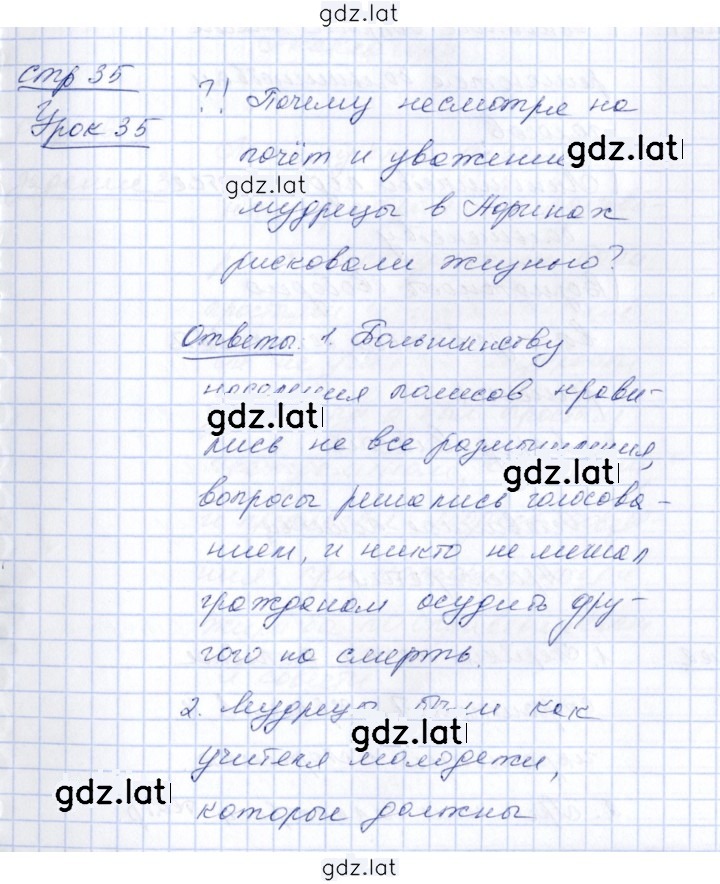 gdz.lat
стр 35
Урок 35
?! Почему несмотре на
почёт и уважение
gdz.lat
gdz.lat
мудрецы в Афинах
рисковали жизнью?
Ответы: 1. Большинству
населения полисов нрави-
gdz.lat
лись не все размышления,
gdz.lat
вопросы решались голосова-
нием, и никто не мешал
гражданам осудить дру-
гого на смерть.
2. Мудрецы были как
gdz.lat
учителя молодежи,
gdz.lat
которые должны
gdz.lat